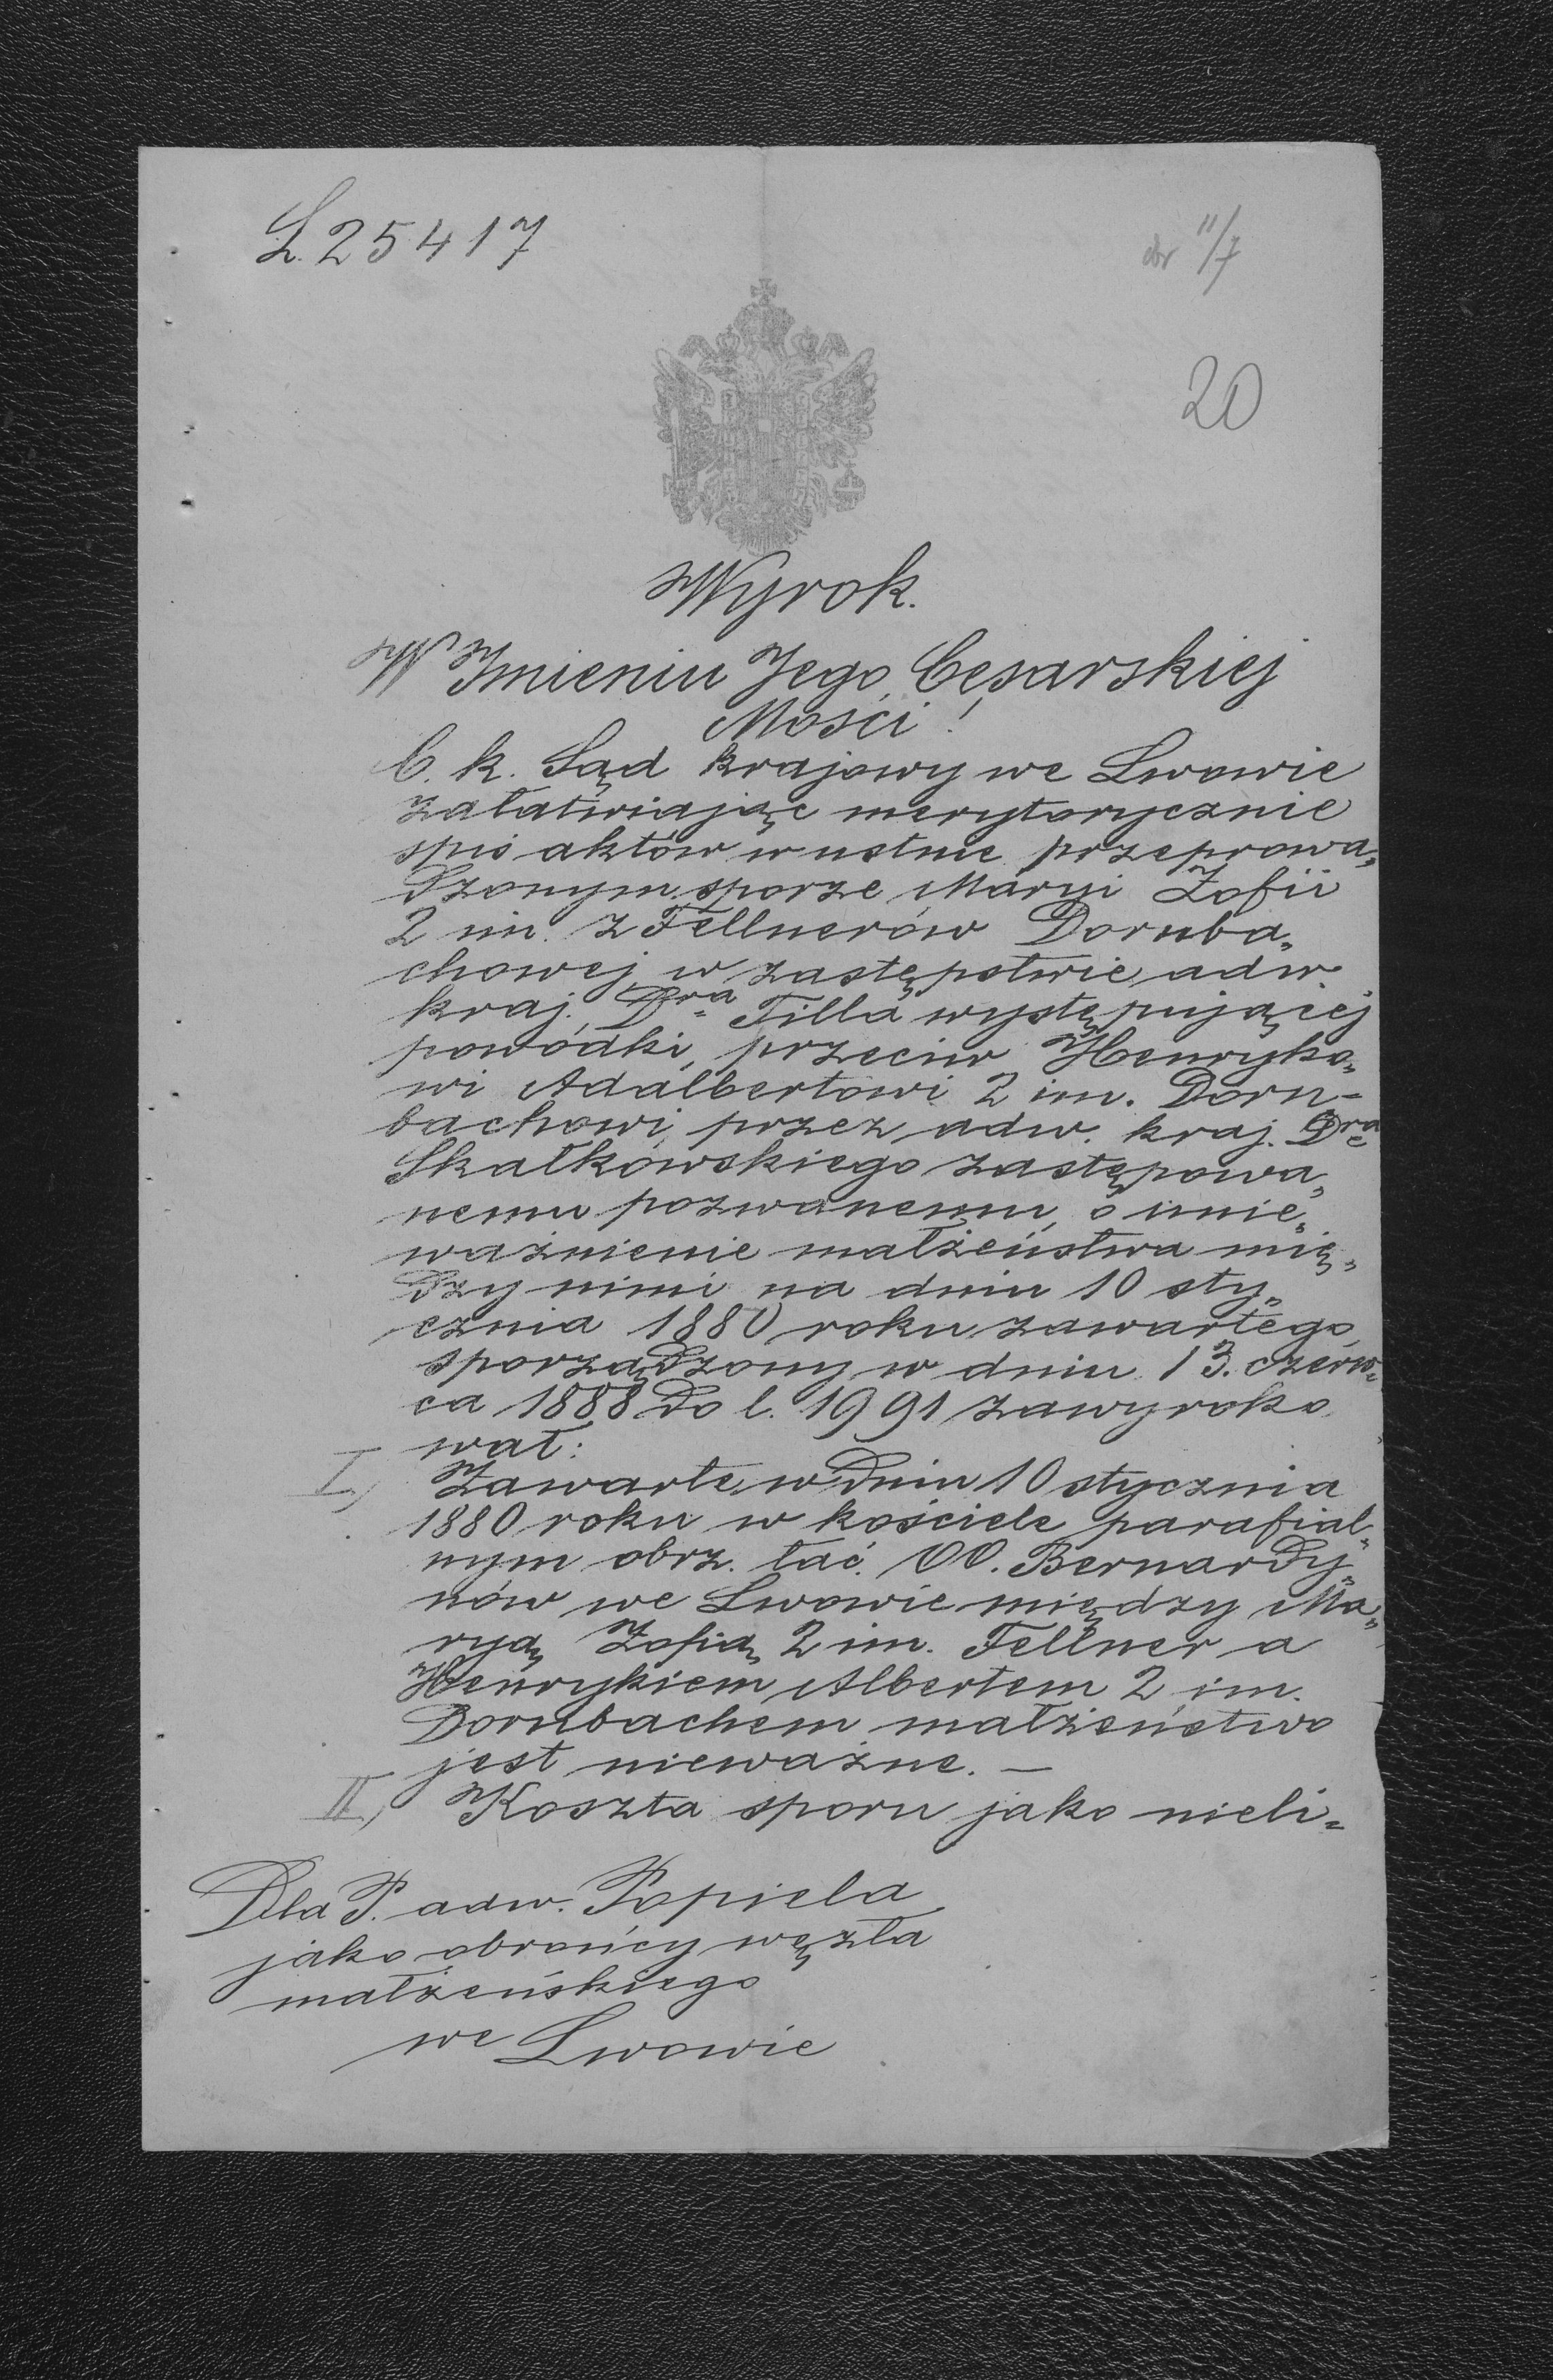 L. 25417
11/7
20
Wyrok.
W Imieniu Jego Cesarskiej
Mości!
C. k. Sąd krajowy we Lwowie
załatwiając merytorycznie
spis aktów w ustnie przeprowa„
dzonym sporze Maryi Zofii
2 im. z Fellnerów Dornba„
chowej w zastępstwie adw.
kraj. Dra Tilla występującej
powódki, przeciw Henryko„
wi Adalbertowi 2 im. Dorn-
bachowi przez adw. kraj. Dra
Skałkowskiego zastępowa„
nemu pozwanemu, o unie„
ważnienie małżeństwa mię„
dzy nimi na dniu 10 sty„
cznia 1880 roku zawartego,
sporządzony w dniu 13. czerw„
ca 1888 do l. 1991 zawyroko„
wał:
I, Zawarte w dniu 10 stycznia
1880 roku w kościele parafial„
nym obrz. łać. OO. Bernardy„
nów we Lwowie między Ma„
ryą Zofią 2 im. Fellner a
Henrykiem Albertem 2 im.
Dornbachem małżeństwo
jest nieważne. —
II, Koszta sporu jako nieli„
Dla P. adw. Popiela
jako obrońcy węzła
małżeńskiego
we Lwowie